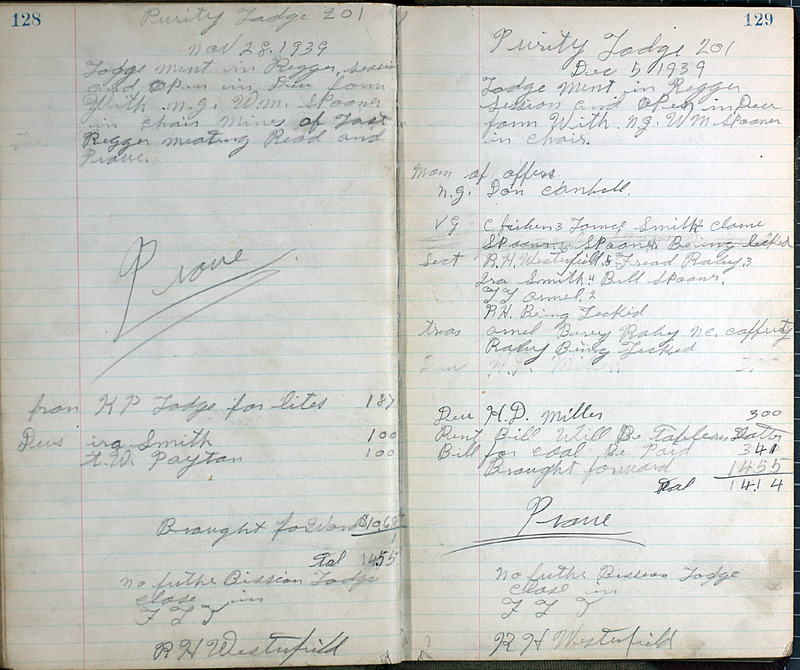 128
Purity Lodge 201
Nov 28, 1939
Lodge ment in Regger, session
and open in Deu form
With N.G. Wm. Spooner
in chair mines of Last
Regger meating Read and
Prove.
Prove
from K P Lodge for lites 187
Dews ira Smith 100
t. W. Paytan 100
Brought forward $1068
Tal 1455
no futhe Bission Lodge
close in
F L T
R H Westerfield
129
Purity Lodge 201
Dec 5, 1939
Lodge ment in Regger
session and open in Deu
form With. N.G. Wm Spooner
in chair.
Nom of offers.
N.G. Don Cambell.
VG Smith
Spooner Spooner Being lected
Sect R.H. Westerfield & Fread Raby, 3
Ira Smith 4 Bill Spooner.
2
R.H. Being Lected
treas Raby Mc. cafferty
Raby Being Lected
Deu H.D. Miller 300
Rent Bill Will Be
Bill for coal Be Paid 341
Brought forward 1455
Tal 1414
Prove
no futhe Bission Lodge
close in
F L T
R H Westerfield